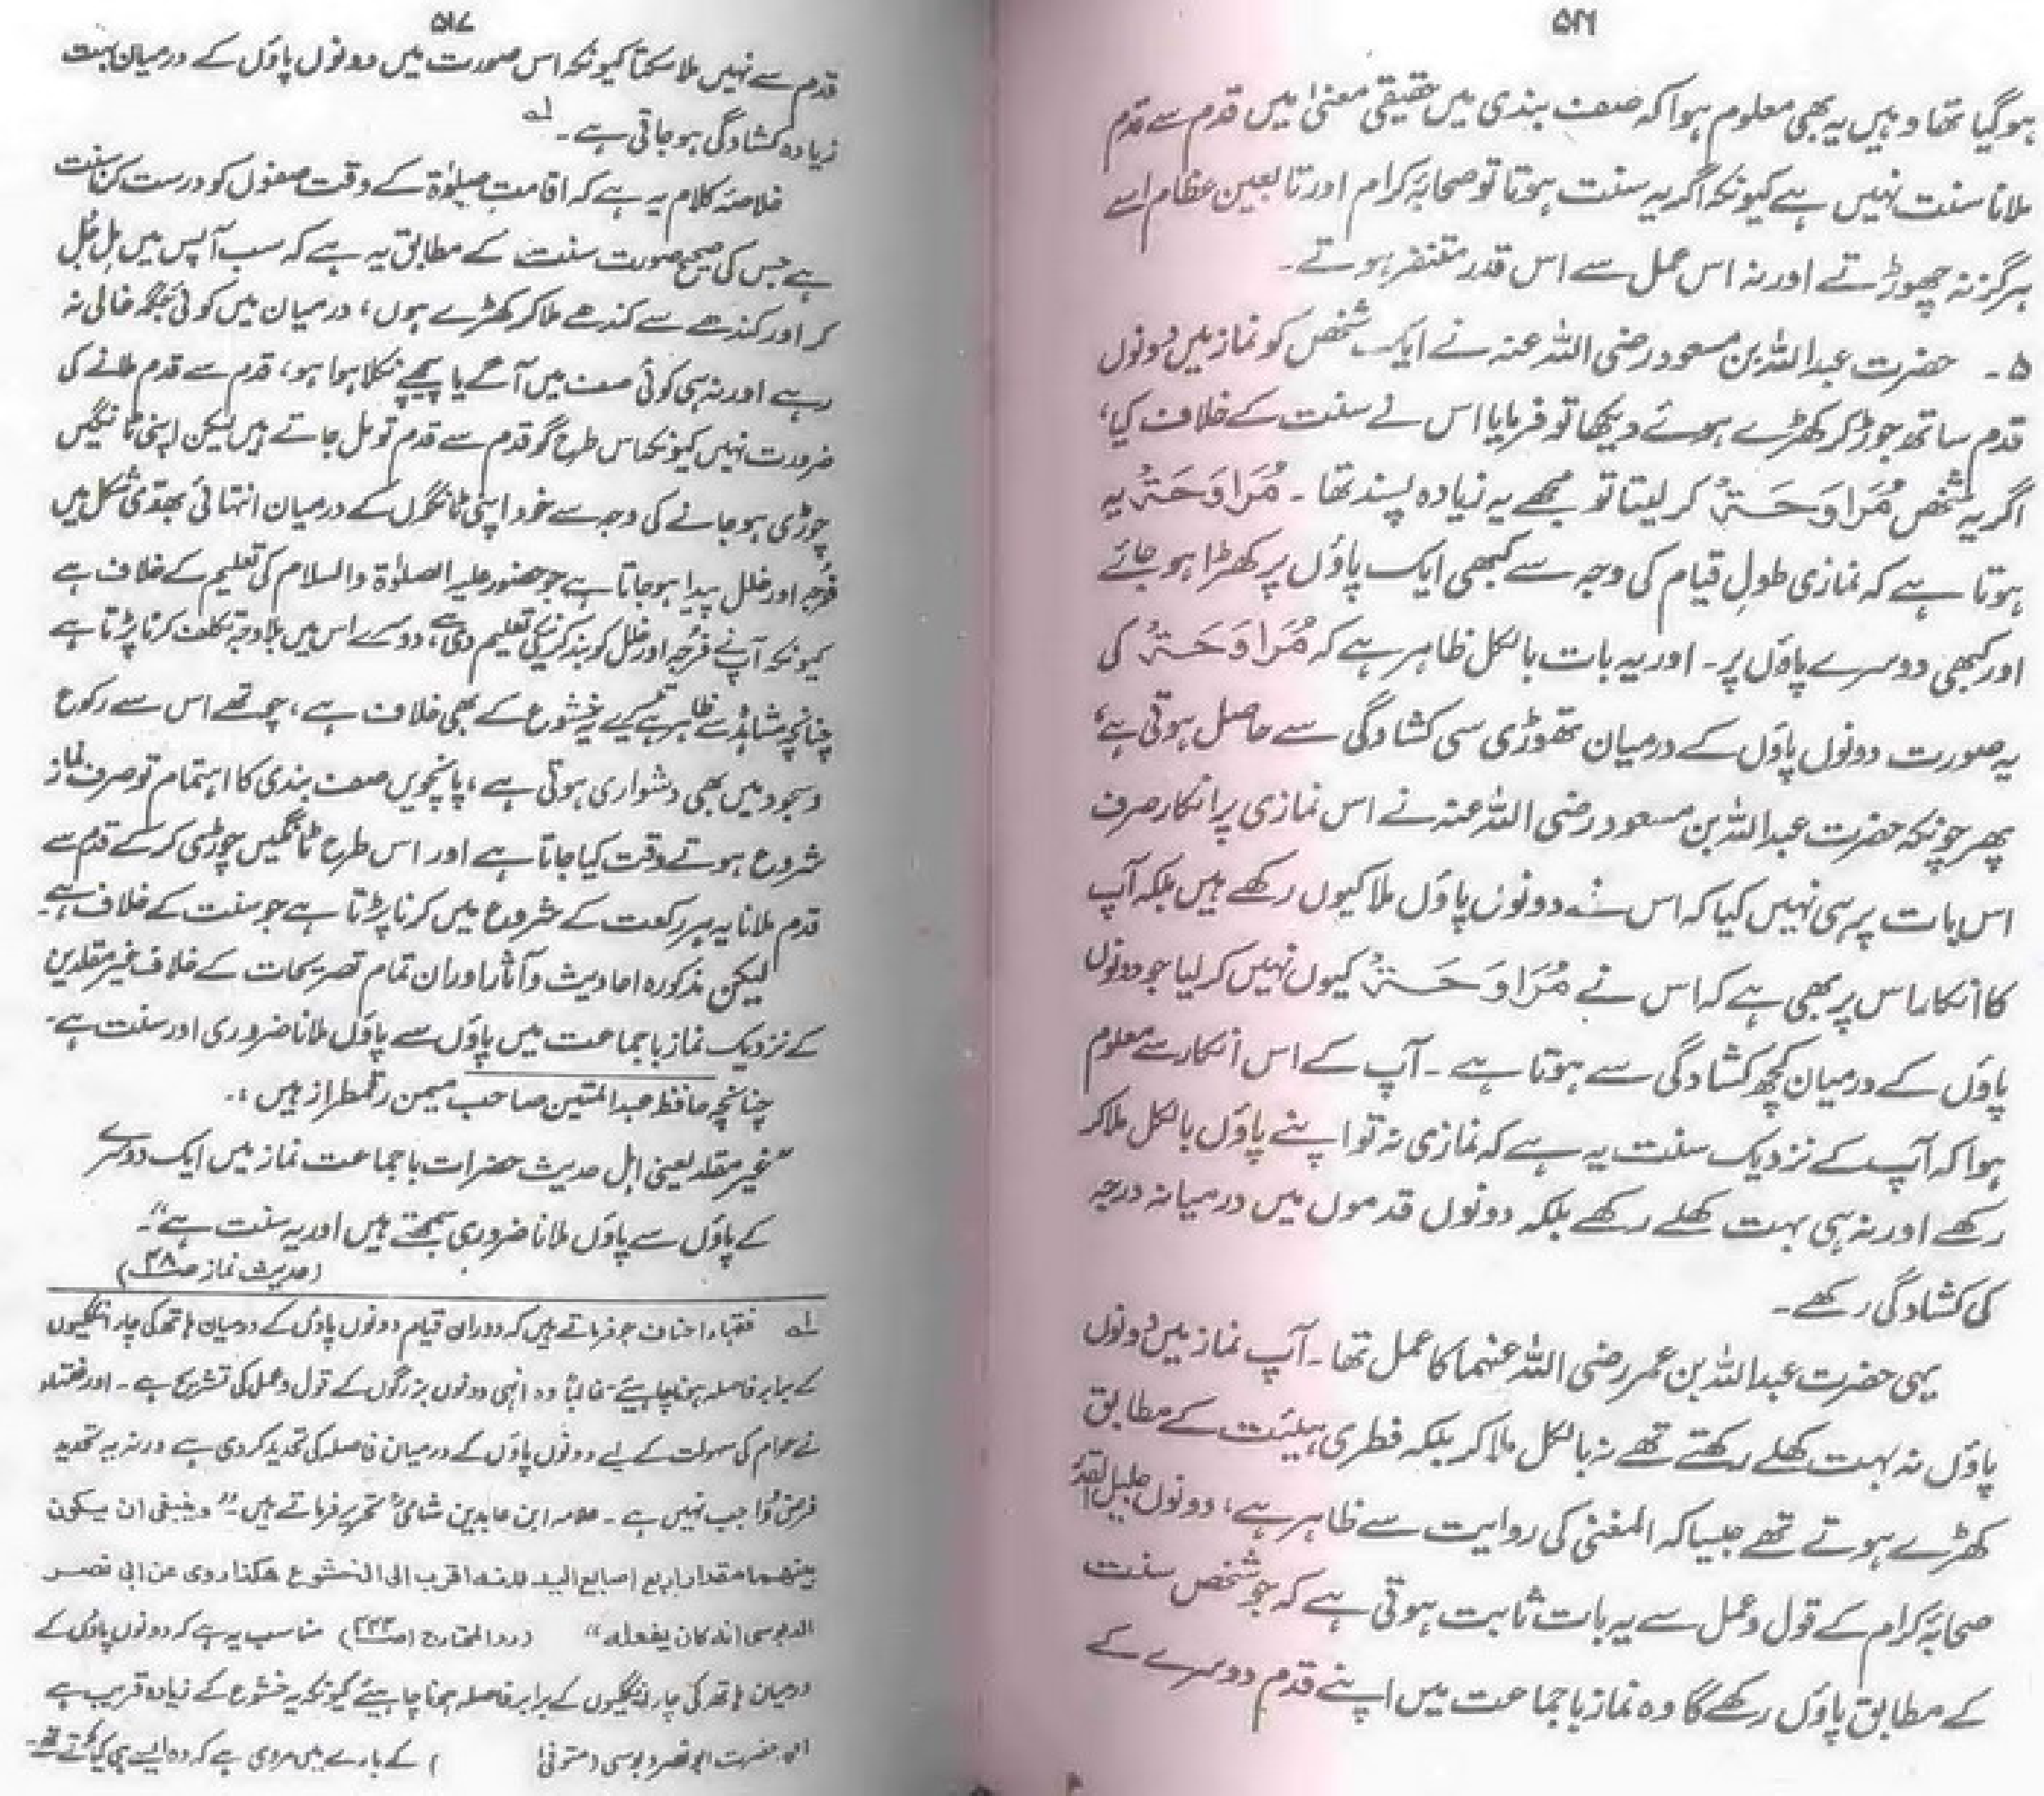 ۵۱۶
ہوگیا تھا وہیں یہ بھی معلوم ہوا کہ صف بندی میں حقیقی معنیٰ میں قدم سے قدم
ملانا سنت نہیں ہے کیونکہ اگر یہ سنت ہوتا تو صحابۂ کرام اور تابعین عظام اسے
ہرگز نہ چھوڑتے اور نہ اس عمل سے اس قدر متنفر ہوتے۔
۵۔ حضرت عبداللہ بن مسعود رضی اللہ عنہ نے ایک شخص کو نماز میں دونوں
قدم ساتھ جوڑ کر کھڑے ہوئے دیکھا تو فرمایا اس نے سنت کے خلاف کیا،
اگر یہ شخص مُرَاوَحَۃٌ کر لیتا تو مجھے یہ زیادہ پسند تھا۔ مُرَاوَحَۃٌ یہ
ہوتا ہے کہ نمازی طولِ قیام کی وجہ سے کبھی ایک پاؤں پر کھڑا ہو جائے
اور کبھی دوسرے پاؤں پر۔ اور یہ بات بالکل ظاہر ہے کہ مُرَاوَحَۃٌ کی
یہ صورت دونوں پاؤں کے درمیان تھوڑی سی کشادگی سے حاصل ہوتی ہے،
پھر چونکہ حضرت عبداللہ بن مسعود رضی اللہ عنہ نے اس نمازی پر انکار صرف
اس بات پر ہی نہیں کیا کہ اس نے دونوں پاؤں ملا کیوں رکھے ہیں بلکہ آپ
کا انکار اس پر بھی ہے کہ اس نے مُرَاوَحَۃٌ کیوں نہیں کر لیا جو دونوں
پاؤں کے درمیان کچھ کشادگی سے ہوتا ہے۔ آپ کے اس انکار سے معلوم
ہوا کہ آپ کے نزدیک سنت یہ ہے کہ نمازی نہ تو اپنے پاؤں بالکل ملا کر
رکھے اور نہ ہی بہت کھلے رکھے بلکہ دونوں قدموں میں درمیانہ درجہ
کی کشادگی رکھے۔
یہی حضرت عبداللہ بن عمر رضی اللہ عنہما کا عمل تھا۔ آپ نماز میں دونوں
پاؤں نہ بہت کھلے رکھتے تھے نہ بالکل ملا کر بلکہ فطری ہیئت کے مطابق
کھڑے ہوتے تھے جیسا کہ المغنی کی روایت سے ظاہر ہے، دونوں جلیل القدر
صحابۂ کرام کے قول و عمل سے یہ بات ثابت ہوتی ہے کہ جو شخص سنت
کے مطابق پاؤں رکھے گا وہ نماز باجماعت میں اپنے قدم دوسرے کے
۵۱۷
قدم سے نہیں ملا سکتا کیونکہ اس صورت میں دونوں پاؤں کے درمیان بہت
زیادہ کشادگی ہو جاتی ہے۔ لہ
خلاصۂ کلام یہ ہے کہ اقامتِ صلوٰۃ کے وقت صفوں کو درست کرنا سنت
ہے جس کی صحیح صورت سنت کے مطابق یہ ہے کہ سب آپس میں مِل جُل
کر اور کندھے سے کندھے ملا کر کھڑے ہوں، درمیان میں کوئی جگہ خالی نہ
رہے اور نہ ہی کوئی صف میں آگے یا پیچھے نکلا ہوا ہو، قدم سے قدم ملانے کی
ضرورت نہیں کیونکہ اس طرح گو قدم سے قدم تو مل جاتے ہیں لیکن اپنی ٹانگیں
چوڑی ہو جانے کی وجہ سے خود اپنی ٹانگوں کے درمیان انتہائی بھدی شکل میں
فُرجہ اور خلل پیدا ہو جاتا ہے جو حضور علیہ الصلوٰۃ والسلام کی تعلیم کے خلاف ہے
کیونکہ آپ نے فُرجہ اور خلل کو بند کرنیکی تعلیم دی ہے، دوسرے اس میں بلاوجہ تکلف کرنا پڑتا ہے
چنانچہ مشاہدہ سے ظاہر ہے تیسرے یہ خشوع کے بھی خلاف ہے، چوتھے اس سے رکوع
و سجود میں بھی دشواری ہوتی ہے، پانچویں صف بندی کا اہتمام تو صرف نماز
شروع ہوتے وقت کیا جاتا ہے اور اس طرح ٹانگیں چوڑی کر کے قدم سے
قدم ملانا یہ ہر رکعت کے شروع میں کرنا پڑتا ہے جو سنت کے خلاف ہے۔
لیکن مذکورہ احادیث و آثار اور ان تمام تصریحات کے خلاف غیر مقلدین
کے نزدیک نماز باجماعت میں پاؤں سے پاؤں ملانا ضروری اور سنت ہے۔
چنانچہ حافظ عبدالمتین صاحب میمن رقمطراز ہیں :۔
"غیر مقلد یعنی اہل حدیث حضرات باجماعت نماز میں ایک دوسرے
کے پاؤں سے پاؤں ملانا ضروری سمجھتے ہیں اور یہ سنت ہے"۔
(حدیث نماز صـ۳۸)
لہ فقہاء احناف جو فرماتے ہیں کہ دوران قیام دونوں پاؤں کے درمیان ہاتھ کی چار انگلیوں
کے برابر فاصلہ ہونا چاہیئے۔ غالباً وہ انہی دونوں بزرگوں کے قول و عمل کی تشریح ہے۔ اور فقہاء
نے عوام کی سہولت کے لیے دونوں پاؤں کے درمیان فاصلہ کی تحدید کر دی ہے ورنہ یہ تحدید
فرض و واجب نہیں ہے۔ علامہ ابن عابدین شامیؒ تحریر فرماتے ہیں۔ "وینبغی ان یکون
بینھما مقدار اربع اصابع الید لانہ اقرب الی الخشوع ھکذا روی عن ابی نصر
الدبوسی انہ کان یفعلہ" (رد المختار ج۱ صـ۴۴۴) مناسب یہ ہے کہ دونوں پاؤں کے
درمیان ہاتھ کی چار انگلیوں کے برابر فاصلہ ہونا چاہیئے کیونکہ یہ خشوع کے زیادہ قریب ہے
اور حضرت ابو نصر دبوسی (متوفیٰ ) کے بارے میں مروی ہے کہ وہ ایسے ہی کیا کرتے تھے۔